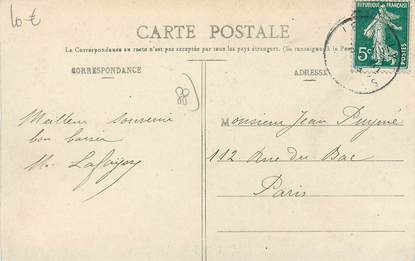 10 €
CARTE POSTALE
La Correspondance au recto n'est pas acceptée par tous les pays étrangers. (Se renseigner à la Poste)
CORRESPONDANCE
ADRESSE
REPUBLIQUE FRANÇAISE
5c
POSTES
88
Meilleur souvenir
bon baiser
Monsieur Jean
112 Rue du Bac
Paris